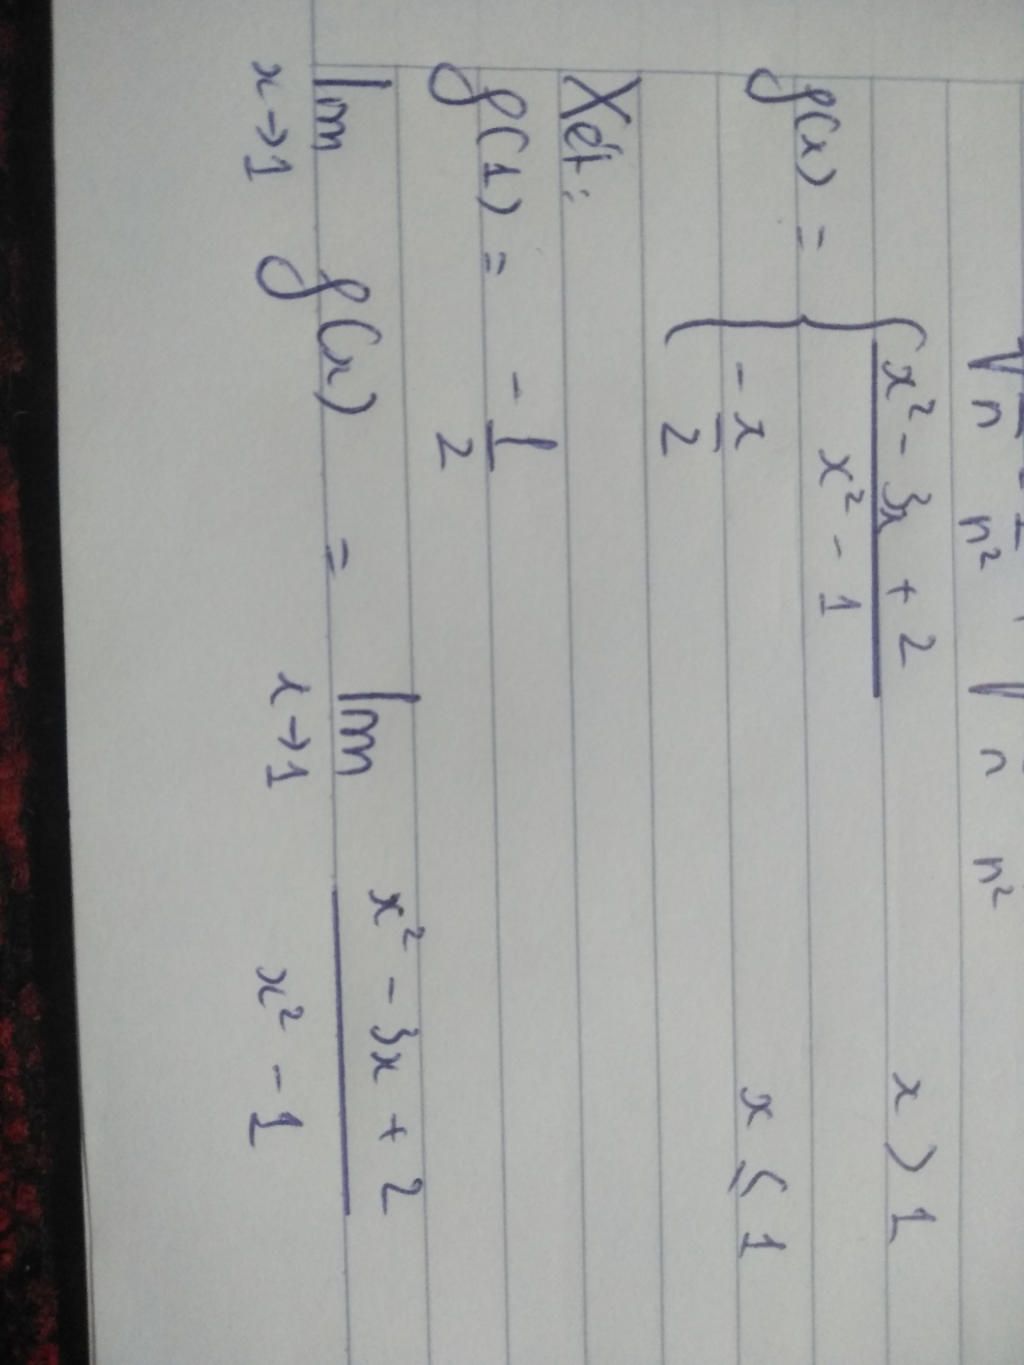 f(x) = { (x² - 3x + 2) / (x² - 1)    x > 1
- x/2    x ≤ 1
Xét:
f(1) = - 1/2
lim x→1 f(x) = lim x→1 (x² - 3x + 2) / (x² - 1)